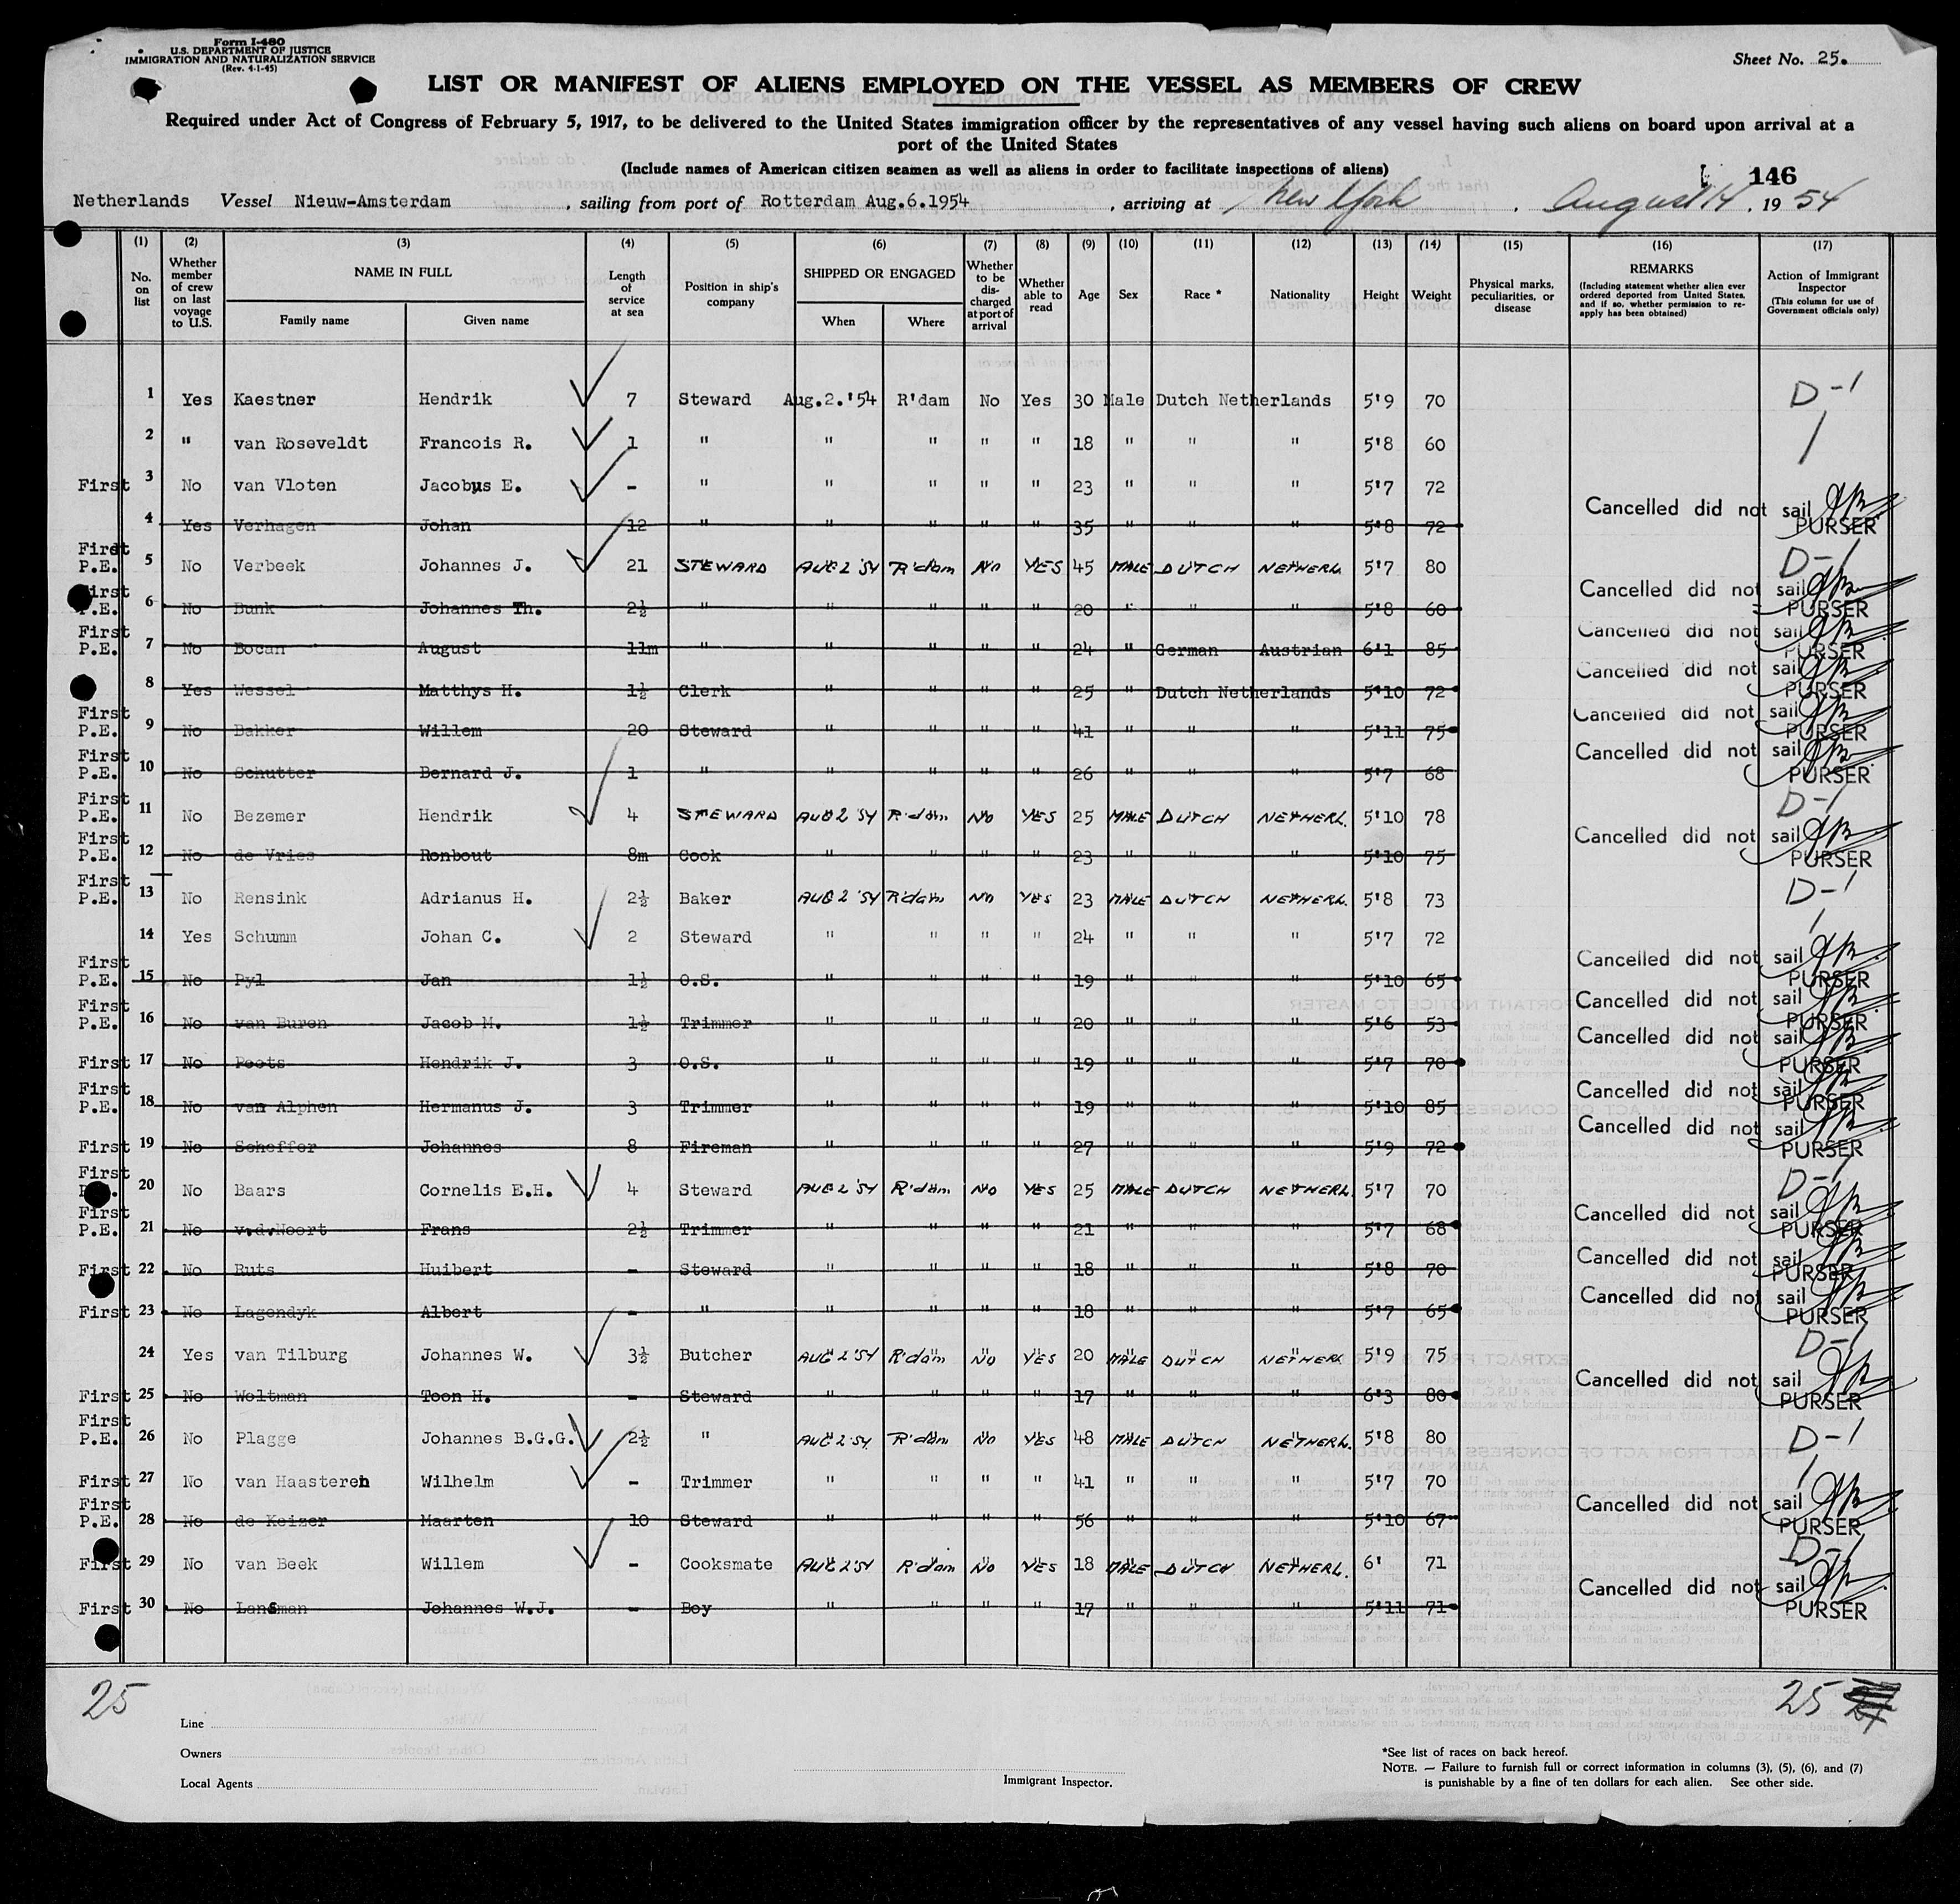 Form I-480
U.S. DEPARTMENT OF JUSTICE
IMMIGRATION AND NATURALIZATION SERVICE
(Rev. 4-1-45)
Sheet No. 25.
LIST OR MANIFEST OF ALIENS EMPLOYED ON THE VESSEL AS MEMBERS OF CREW
Required under Act of Congress of February 5, 1917, to be delivered to the United States immigration officer by the representatives of any vessel having such aliens on board upon arrival at a
port of the United States
(Include names of American citizen seamen as well as aliens in order to facilitate inspections of aliens)
146
Netherlands Vessel Nieuw-Amsterdam , sailing from port of Rotterdam Aug.6.1954 , arriving at New York , August 14 , 19 54
(1) (2) (3) (4) (5) (6) (7) (8) (9) (10) (11) (12) (13) (14) (15) (16) (17)
No. on list Whether member of crew on last voyage to U.S. NAME IN FULL Family name Given name Length of service at sea Position in ship's company SHIPPED OR ENGAGED When Where Whether to be discharged at port of arrival Whether able to read Age Sex Race * Nationality Height Weight Physical marks, peculiarities, or disease REMARKS (Including statement whether alien ever ordered deported from United States, and if so, whether permission to re-apply has been obtained) Action of Immigrant Inspector (This column for use of Government officials only)
1 Yes Kaestner Hendrik 7 Steward Aug.2.'54 R'dam No Yes 30 Male Dutch Netherlands 5'9 70 D-1
2 " van Roseveldt Francois R. 1 " " " " " 18 " " " 5'8 60
First 3 No van Vloten Jacobus E. - " " " " " 23 " " " 5'7 72
4 Yes Verhagen Johan 12 " " " " " 35 " " " 5'8 72 Cancelled did not sail PURSER
First P.E. 5 No Verbeek Johannes J. 21 STEWARD AUG 2 '54 R'dam No YES 45 MALE DUTCH NETHERL 5'7 80 D-1
First P.E. 6 No Bunk Johannes Th. 2½ " " " " " 20 " " " 5'8 60 Cancelled did not sail PURSER
First P.E. 7 No Bocan August 11m " " " " " 24 " German Austrian 6'1 85 Cancelled did not sail PURSER
8 Yes Wessel Matthys H. 1½ Clerk " " " " 25 " Dutch Netherlands 5'10 72 Cancelled did not sail PURSER
First P.E. 9 No Bakker Willem 20 Steward " " " " 41 " " " 5'11 75 Cancelled did not sail PURSER
First P.E. 10 No Schutter Bernard J. 1 " " " " " 26 " " " 5'7 68 Cancelled did not sail PURSER
First P.E. 11 No Bezemer Hendrik 4 STEWARD AUG 2 '54 R'dam No YES 25 MALE DUTCH NETHERL. 5'10 78 D-1
First P.E. 12 No de Vries Ronbout 8m Cook " " " " 23 " " " 5'10 75 Cancelled did not sail PURSER
First P.E. 13 No Rensink Adrianus H. 2½ Baker AUG 2 '54 R'dam No YES 23 MALE DUTCH NETHERL. 5'8 73 D-1
14 Yes Schumm Johan C. 2 Steward " " " " 24 " " " 5'7 72
First P.E. 15 No Pyl Jan 1½ O.S. " " " " 19 " " " 5'10 65 Cancelled did not sail PURSER
First P.E. 16 No van Buren Jacob M. 1½ Trimmer " " " " 20 " " " 5'6 53 Cancelled did not sail PURSER
First 17 No Poots Hendrik J. 3 O.S. " " " " 19 " " " 5'7 70 Cancelled did not sail PURSER
First P.E. 18 No van Alphen Hermanus J. 3 Trimmer " " " " 19 " " " 5'10 85 Cancelled did not sail PURSER
First 19 No Scheffer Johannes 8 Fireman " " " " 27 " " " 5'9 72 Cancelled did not sail PURSER
First 20 No Baars Cornelis E.H. 4 Steward AUG 2 '54 R'dam No YES 25 MALE DUTCH NETHERL. 5'7 70 D-1
First P.E. 21 No v.d.Noort Frans 2½ Trimmer " " " " 21 " " " 5'7 68 Cancelled did not sail PURSER
First 22 No Ruts Huibert - Steward " " " " 18 " " " 5'8 70 Cancelled did not sail PURSER
First 23 No Lagendyk Albert - " " " " " 18 " " " 5'7 65 Cancelled did not sail PURSER
24 Yes van Tilburg Johannes W. 3½ Butcher AUG 2 '54 R'dam No YES 20 MALE DUTCH NETHERL 5'9 75 D-1
First 25 No Woltman Toon H. - Steward " " " " 17 " " " 6'3 80 Cancelled did not sail PURSER
First P.E. 26 No Plagge Johannes B.G.G. 2½ " AUG 2 '54 R'dam No YES 48 MALE DUTCH NETHERL. 5'8 80 D-1
First 27 No van Haasteren Wilhelm - Trimmer " " " " 41 " " " 5'7 70
First P.E. 28 No de Keizer Maarten 10 Steward " " " " 56 " " " 5'10 67 Cancelled did not sail PURSER
First 29 No van Beek Willem - Cooksmate AUG 2 '54 R'dam No YES 18 MALE DUTCH NETHERL. 6' 71 D-1
First 30 No Lansman Johannes W.J. - Boy " " " " 17 " " " 5'11 71 Cancelled did not sail PURSER
25 25
Line
Owners
Local Agents
Immigrant Inspector.
*See list of races on back hereof.
NOTE. — Failure to furnish full or correct information in columns (3), (5), (6), and (7)
is punishable by a fine of ten dollars for each alien. See other side.